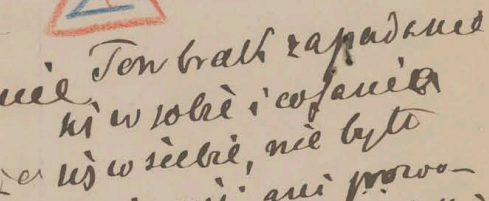 Ten brak zapadania
nie
się w sobie i cofania
się w siebie, nie było
ani powo-